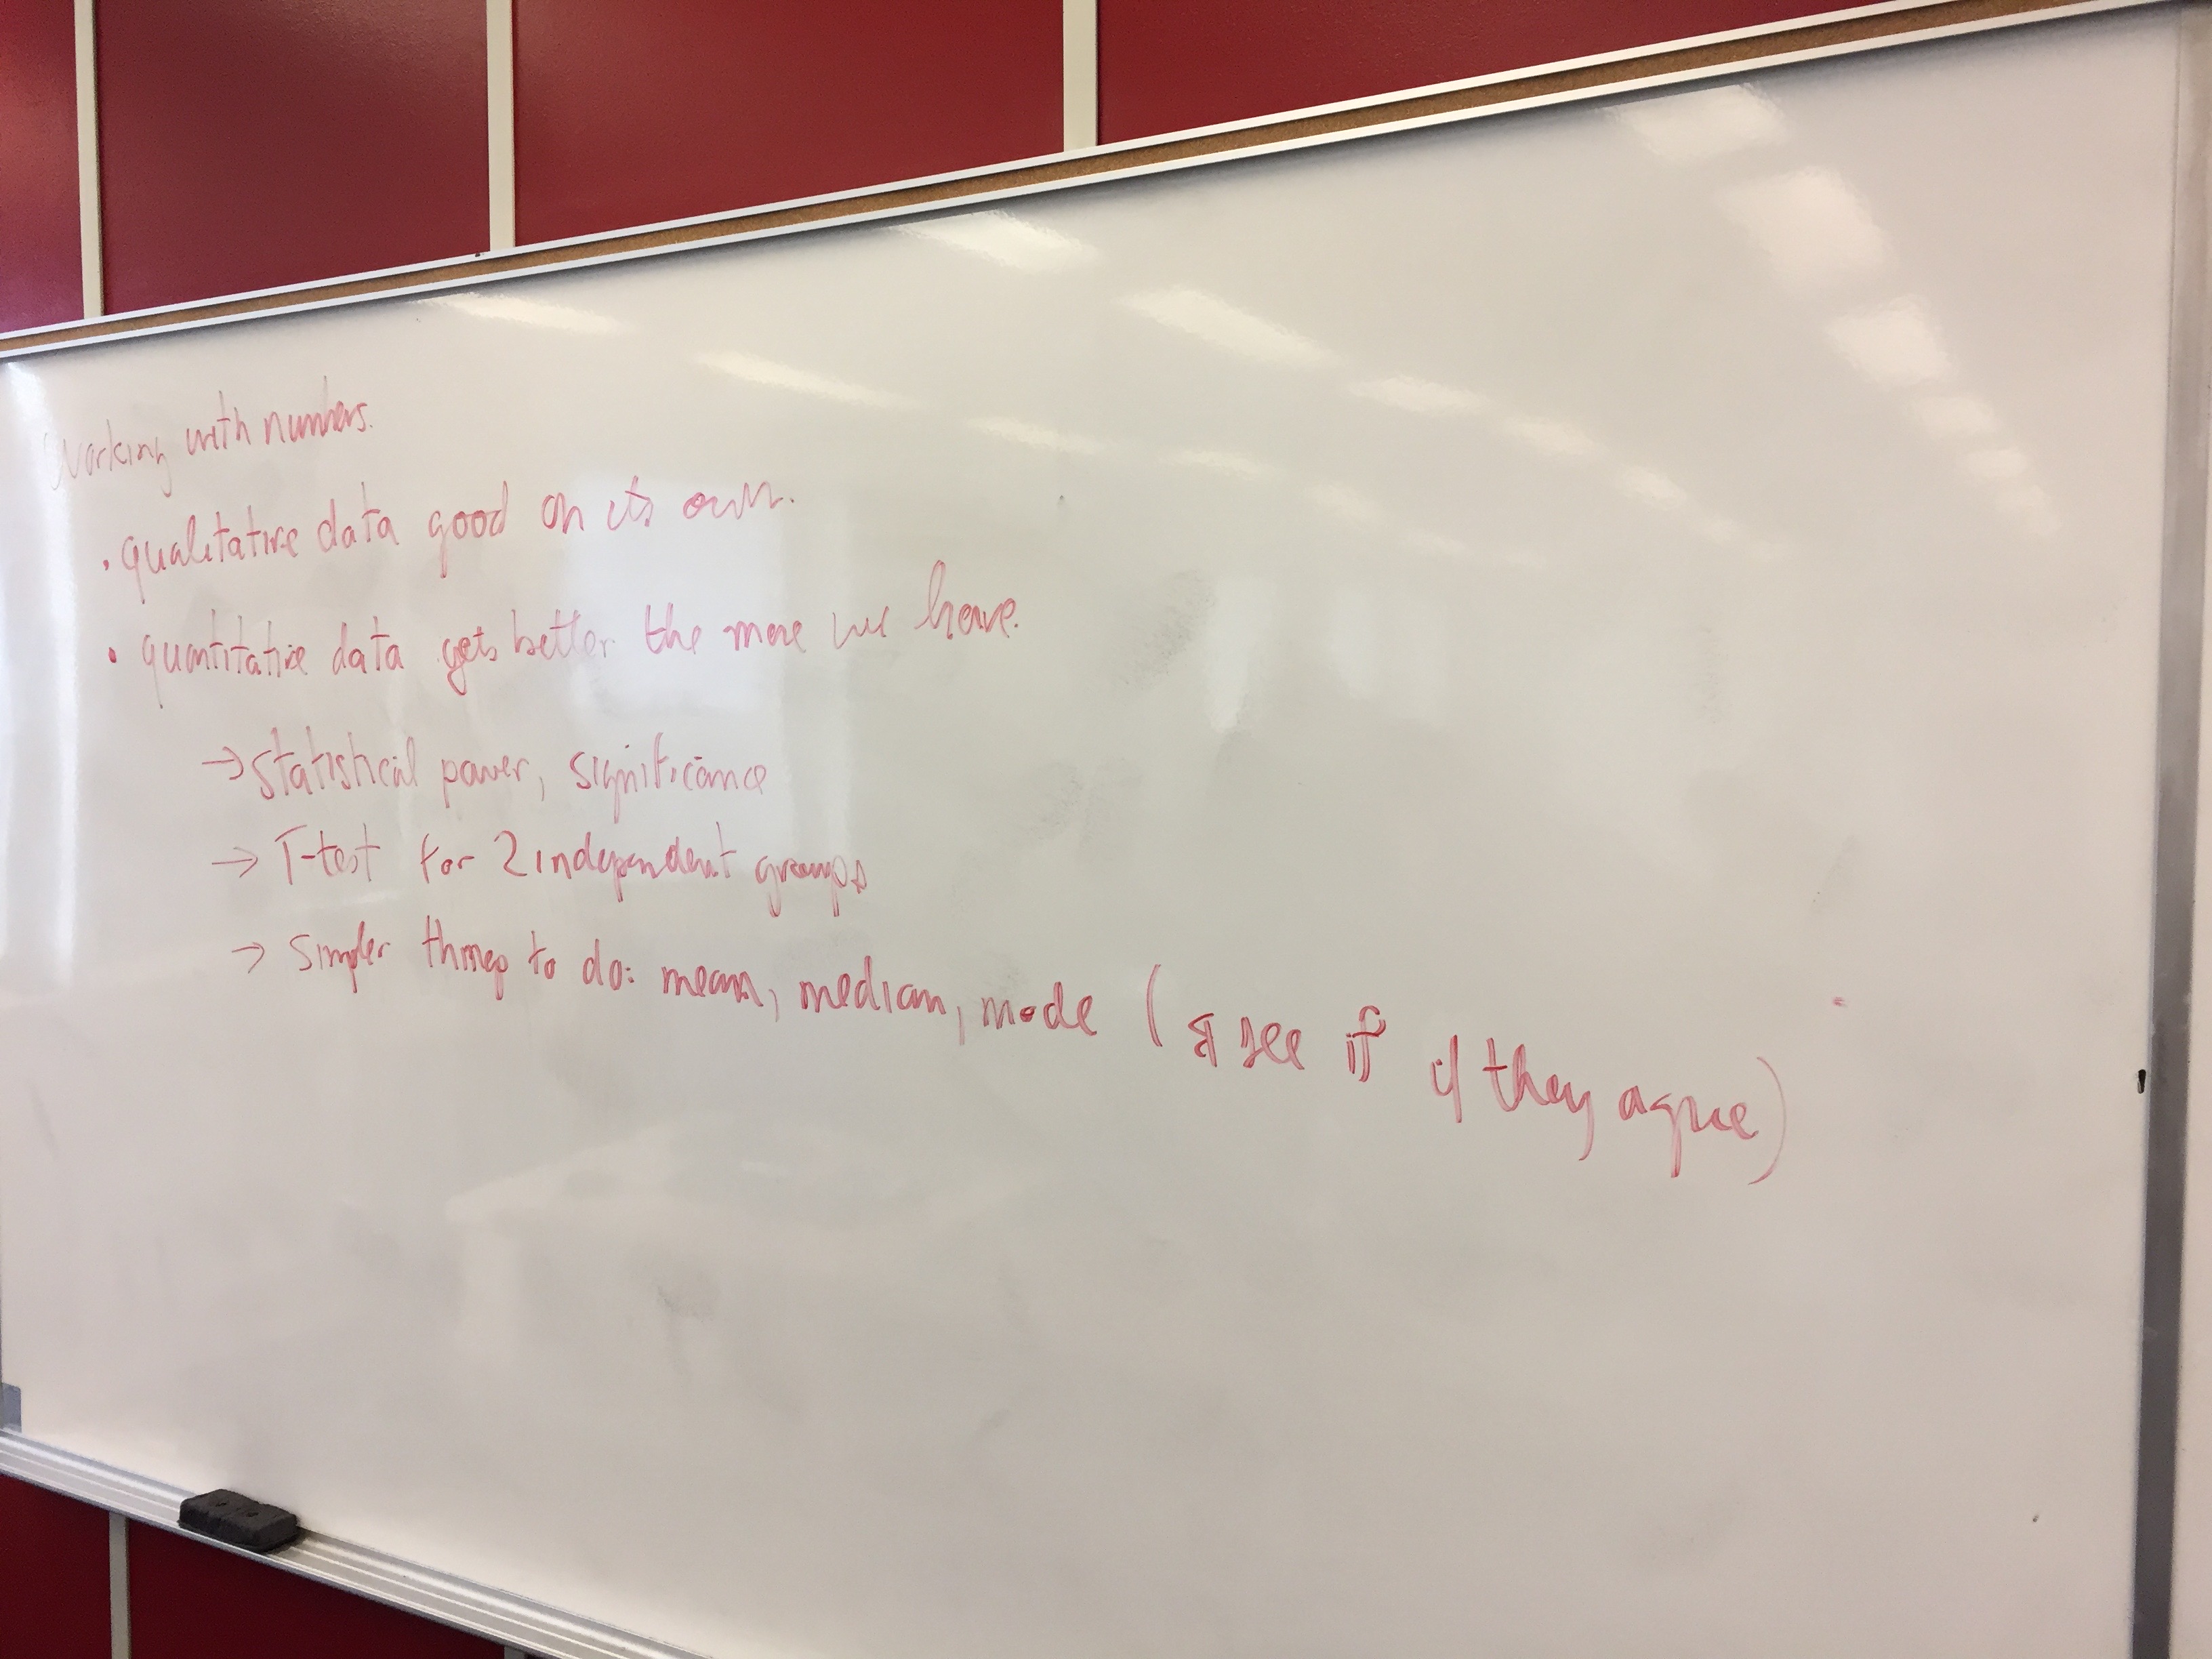 Working with numbers.
• qualitative data good on its own.
• quantitative data gets better the more we have.
→ statistical power, significance
→ T-test for 2 independent groups
→ simpler things to do: mean, median, mode (& see if if they agree)